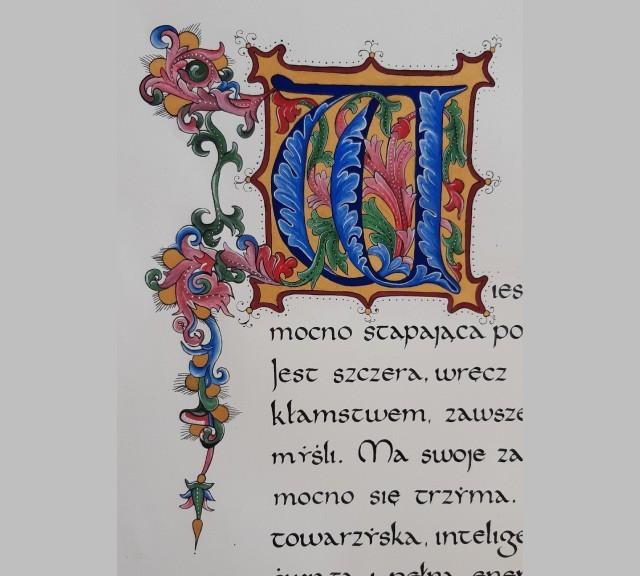 Wies
mocno stąpająca po
Jest szczera, wręcz
kłamstwem, zawsze
myśli. Ma swoje za
mocno się trzyma.
towarzyska, intelige
i pełna ener